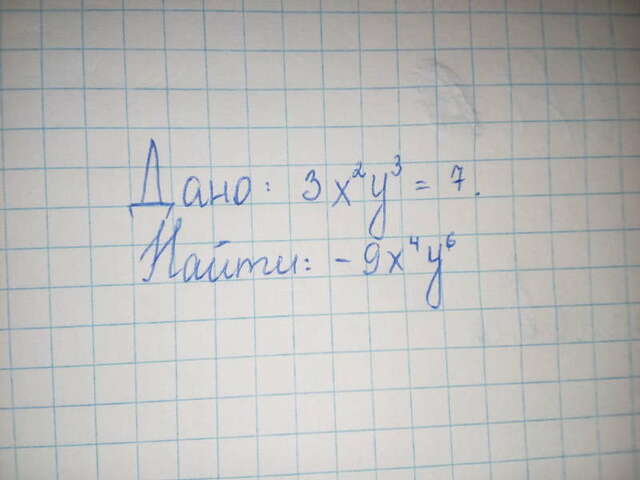 Дано: 3x²y³ = 7.
Найти: -9x⁴y⁶